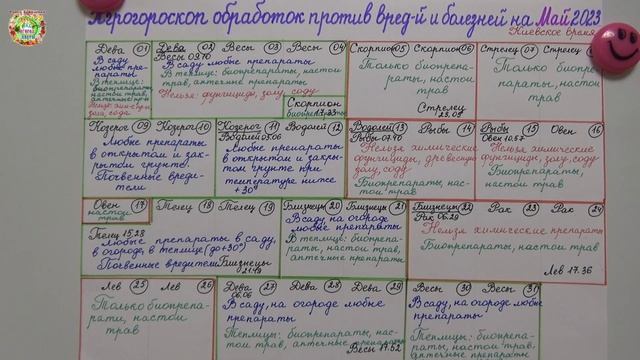 Агрогороскоп обработок против вред-й и болезней на Май 2023
Киевское время
Дева 01
В саду
любые пре-
параты
В теплице:
биопрепараты,
настои трав,
аптечные пр-ты
золу, соду
Дева 02 Весы 03 Весы 04
Весы 09.10
В саду любые препараты
В теплице: биопрепараты, настои
трав, аптечные препараты
Нельзя: фунгициды, золу, соду
Скорпион
17.33
биопрепараты
Скорпион 05 Скорпион 06
Только биопрепа-
раты, настои
трав
Стрелец
23.05
Стрелец 07 Стрелец
Только биопрепа-
раты, настои
трав
Козерог 09 Козерог 10
Любые препараты
в открытом и зак-
рытом грунте.
Почвенные вреди-
тели
Козерог 11 Водолей 12
Водолей
Любые препараты
в открытом и закры-
том грунте при
температуре ниже
+30°
Водолей 13 Рыбы 14
Рыбы
Нельзя химические
фунгициды, древесную
золу, соду
Биопрепараты, нас-
тои трав
Рыбы 15 Овен 16
Овен 10.57
Нельзя химические
фунгициды, золу, соду
Биопрепараты,
настои трав
Овен 17
настои
трав
Телец 18 Телец 19
Телец 15.28
Любые препараты в саду,
в огороде, в теплице (до+30°)
Почвенные вредители
Близнецы
21.49
Близнецы 20 Близнецы 21
В саду, на огороде
любые препараты
В теплице: биопрепа-
раты, настои трав,
аптечные препараты
Близнецы 22 Рак 23 Рак 24
Рак 06.29
Нельзя химические препараты
Биопрепараты, настои трав
Лев 17.36
Лев 25 Лев 26
Только биопрепа-
раты, настои
трав
Дева 27 Дева 28 Дева 29
06.06
В саду, на огороде любые
препараты
Теплицы: биопрепараты, нас-
тои трав, аптечные препараты
Весы 17.52
Весы 30 Весы 31
В саду, на огороде любые
препараты
Теплицы: биопрепа-
раты, настои трав,
аптечные препараты